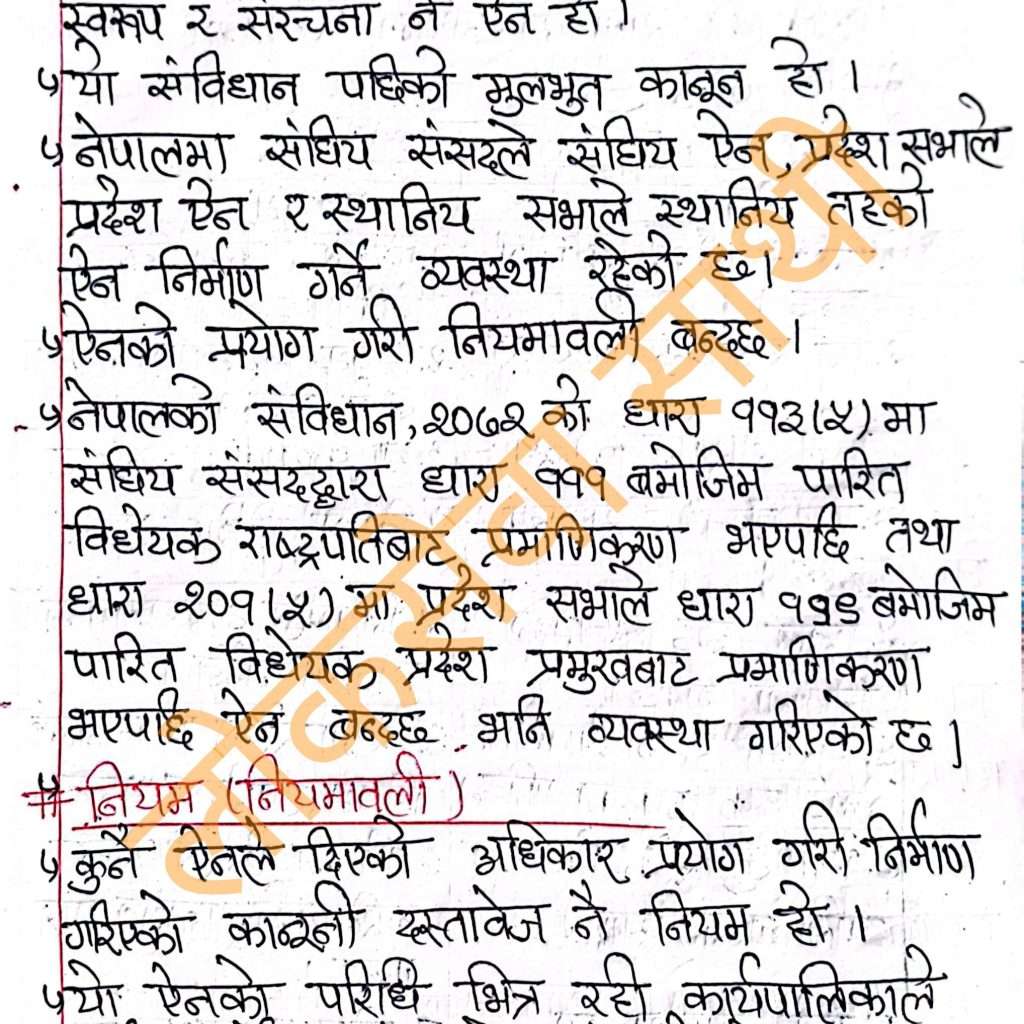 स्वरूप र संरचना नै ऐन हो ।
यो संविधान पछिको मुलभुत कानून हो ।
नेपालमा संघिय संसदले संघिय ऐन, प्रदेश सभाले
प्रदेश ऐन र स्थानिय सभाले स्थानिय तहको
ऐन निर्माण गर्ने व्यवस्था रहेको छ।
ऐनको प्रयोग गरी नियमावली बन्दछ ।
नेपालको संविधान, २०७२ को धारा ११३(५) मा
संघिय संसदद्वारा धारा १११ बमोजिम पारित
विधेयक राष्ट्रपतिबाट प्रमाणिकरण भएपछि तथा
धारा २०१(५) मा प्रदेश सभाले धारा बमोजिम
पारित विधेयक प्रदेश प्रमुखबाट प्रमाणिकरण
भएपछि ऐन बन्दछ भनि व्यवस्था गरिएको छ ।
# नियम (नियमावली)
कुनै ऐनले दिएको अधिकार प्रयोग गरी निर्माण
गरिएको कानूनी दस्तावेज नै नियम हो ।
यो ऐनको परिधि भित्र रही कार्यपालिकाले
लोकसेवा साथी